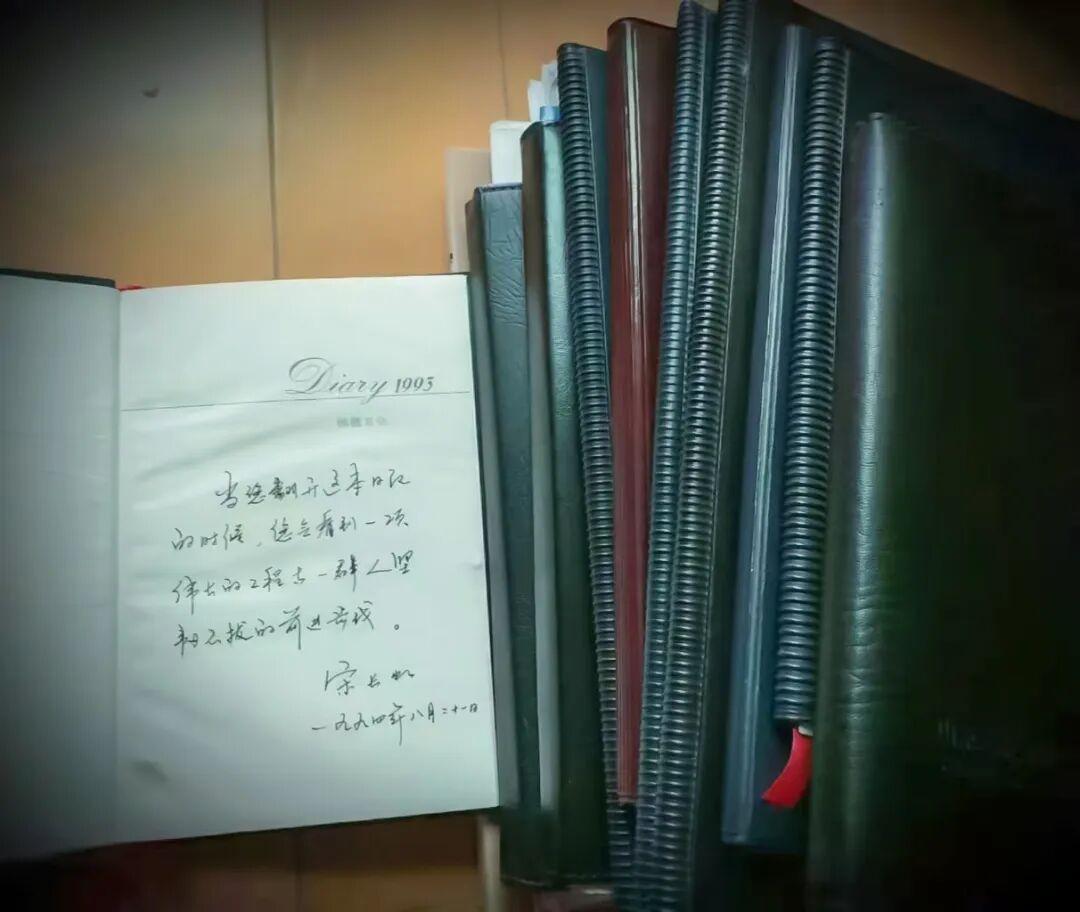 Diary 1993
当您翻开这本日记
的时候，您会看到一项
伟大的工程与一群人坚
韧不拔的前进步伐。
宋长
一九九四年八月二十一日